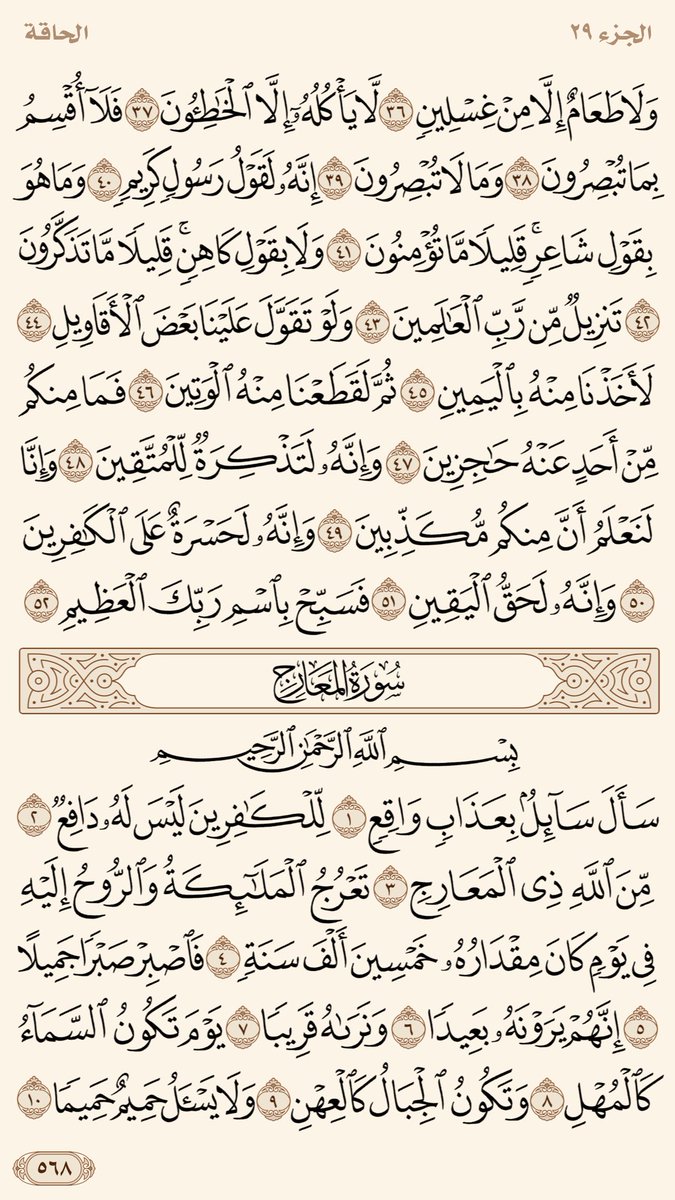 الجزء ٢٩
الحاقة
وَلَا طَعَامٌ إِلَّا مِنْ غِسْلِينٍ ٣٦ لَّا يَأْكُلُهُۥٓ إِلَّا ٱلْخَٰطِـُٔونَ ٣٧ فَلَآ أُقْسِمُ
بِمَا تُبْصِرُونَ ٣٨ وَمَا لَا تُبْصِرُونَ ٣٩ إِنَّهُۥ لَقَوْلُ رَسُولٍ كَرِيمٍ ٤٠ وَمَا هُوَ
بِقَوْلِ شَاعِرٍ ۚ قَلِيلًا مَّا تُؤْمِنُونَ ٤١ وَلَا بِقَوْلِ كَاهِنٍ ۚ قَلِيلًا مَّا تَذَكَّرُونَ
٤٢ تَنزِيلٌ مِّن رَّبِّ ٱلْعَٰلَمِينَ ٤٣ وَلَوْ تَقَوَّلَ عَلَيْنَا بَعْضَ ٱلْأَقَاوِيلِ ٤٤
لَأَخَذْنَا مِنْهُ بِٱلْيَمِينِ ٤٥ ثُمَّ لَقَطَعْنَا مِنْهُ ٱلْوَتِينَ ٤٦ فَمَا مِنكُم
مِّنْ أَحَدٍ عَنْهُ حَٰجِزِينَ ٤٧ وَإِنَّهُۥ لَتَذْكِرَةٌ لِّلْمُتَّقِينَ ٤٨ وَإِنَّا
لَنَعْلَمُ أَنَّ مِنكُم مُّكَذِّبِينَ ٤٩ وَإِنَّهُۥ لَحَسْرَةٌ عَلَى ٱلْكَٰفِرِينَ
٥٠ وَإِنَّهُۥ لَحَقُّ ٱلْيَقِينِ ٥١ فَسَبِّحْ بِٱسْمِ رَبِّكَ ٱلْعَظِيمِ ٥٢
سُورَةُ المَعَارِجِ
بِسْمِ ٱللَّهِ ٱلرَّحْمَٰنِ ٱلرَّحِيمِ
سَأَلَ سَآئِلٌۢ بِعَذَابٍ وَاقِعٍ ١ لِّلْكَٰفِرِينَ لَيْسَ لَهُۥ دَافِعٌ ٢
مِّنَ ٱللَّهِ ذِى ٱلْمَعَارِجِ ٣ تَعْرُجُ ٱلْمَلَٰٓئِكَةُ وَٱلرُّوحُ إِلَيْهِ
فِى يَوْمٍ كَانَ مِقْدَارُهُۥ خَمْسِينَ أَلْفَ سَنَةٍ ٤ فَٱصْبِرْ صَبْرًا جَمِيلًا
٥ إِنَّهُمْ يَرَوْنَهُۥ بَعِيدًا ٦ وَنَرَىٰهُ قَرِيبًا ٧ يَوْمَ تَكُونُ ٱلسَّمَآءُ
كَٱلْمُهْلِ ٨ وَتَكُونُ ٱلْجِبَالُ كَٱلْعِهْنِ ٩ وَلَا يَسْـَٔلُ حَمِيمٌ حَمِيمًا ١٠
٥٦٨